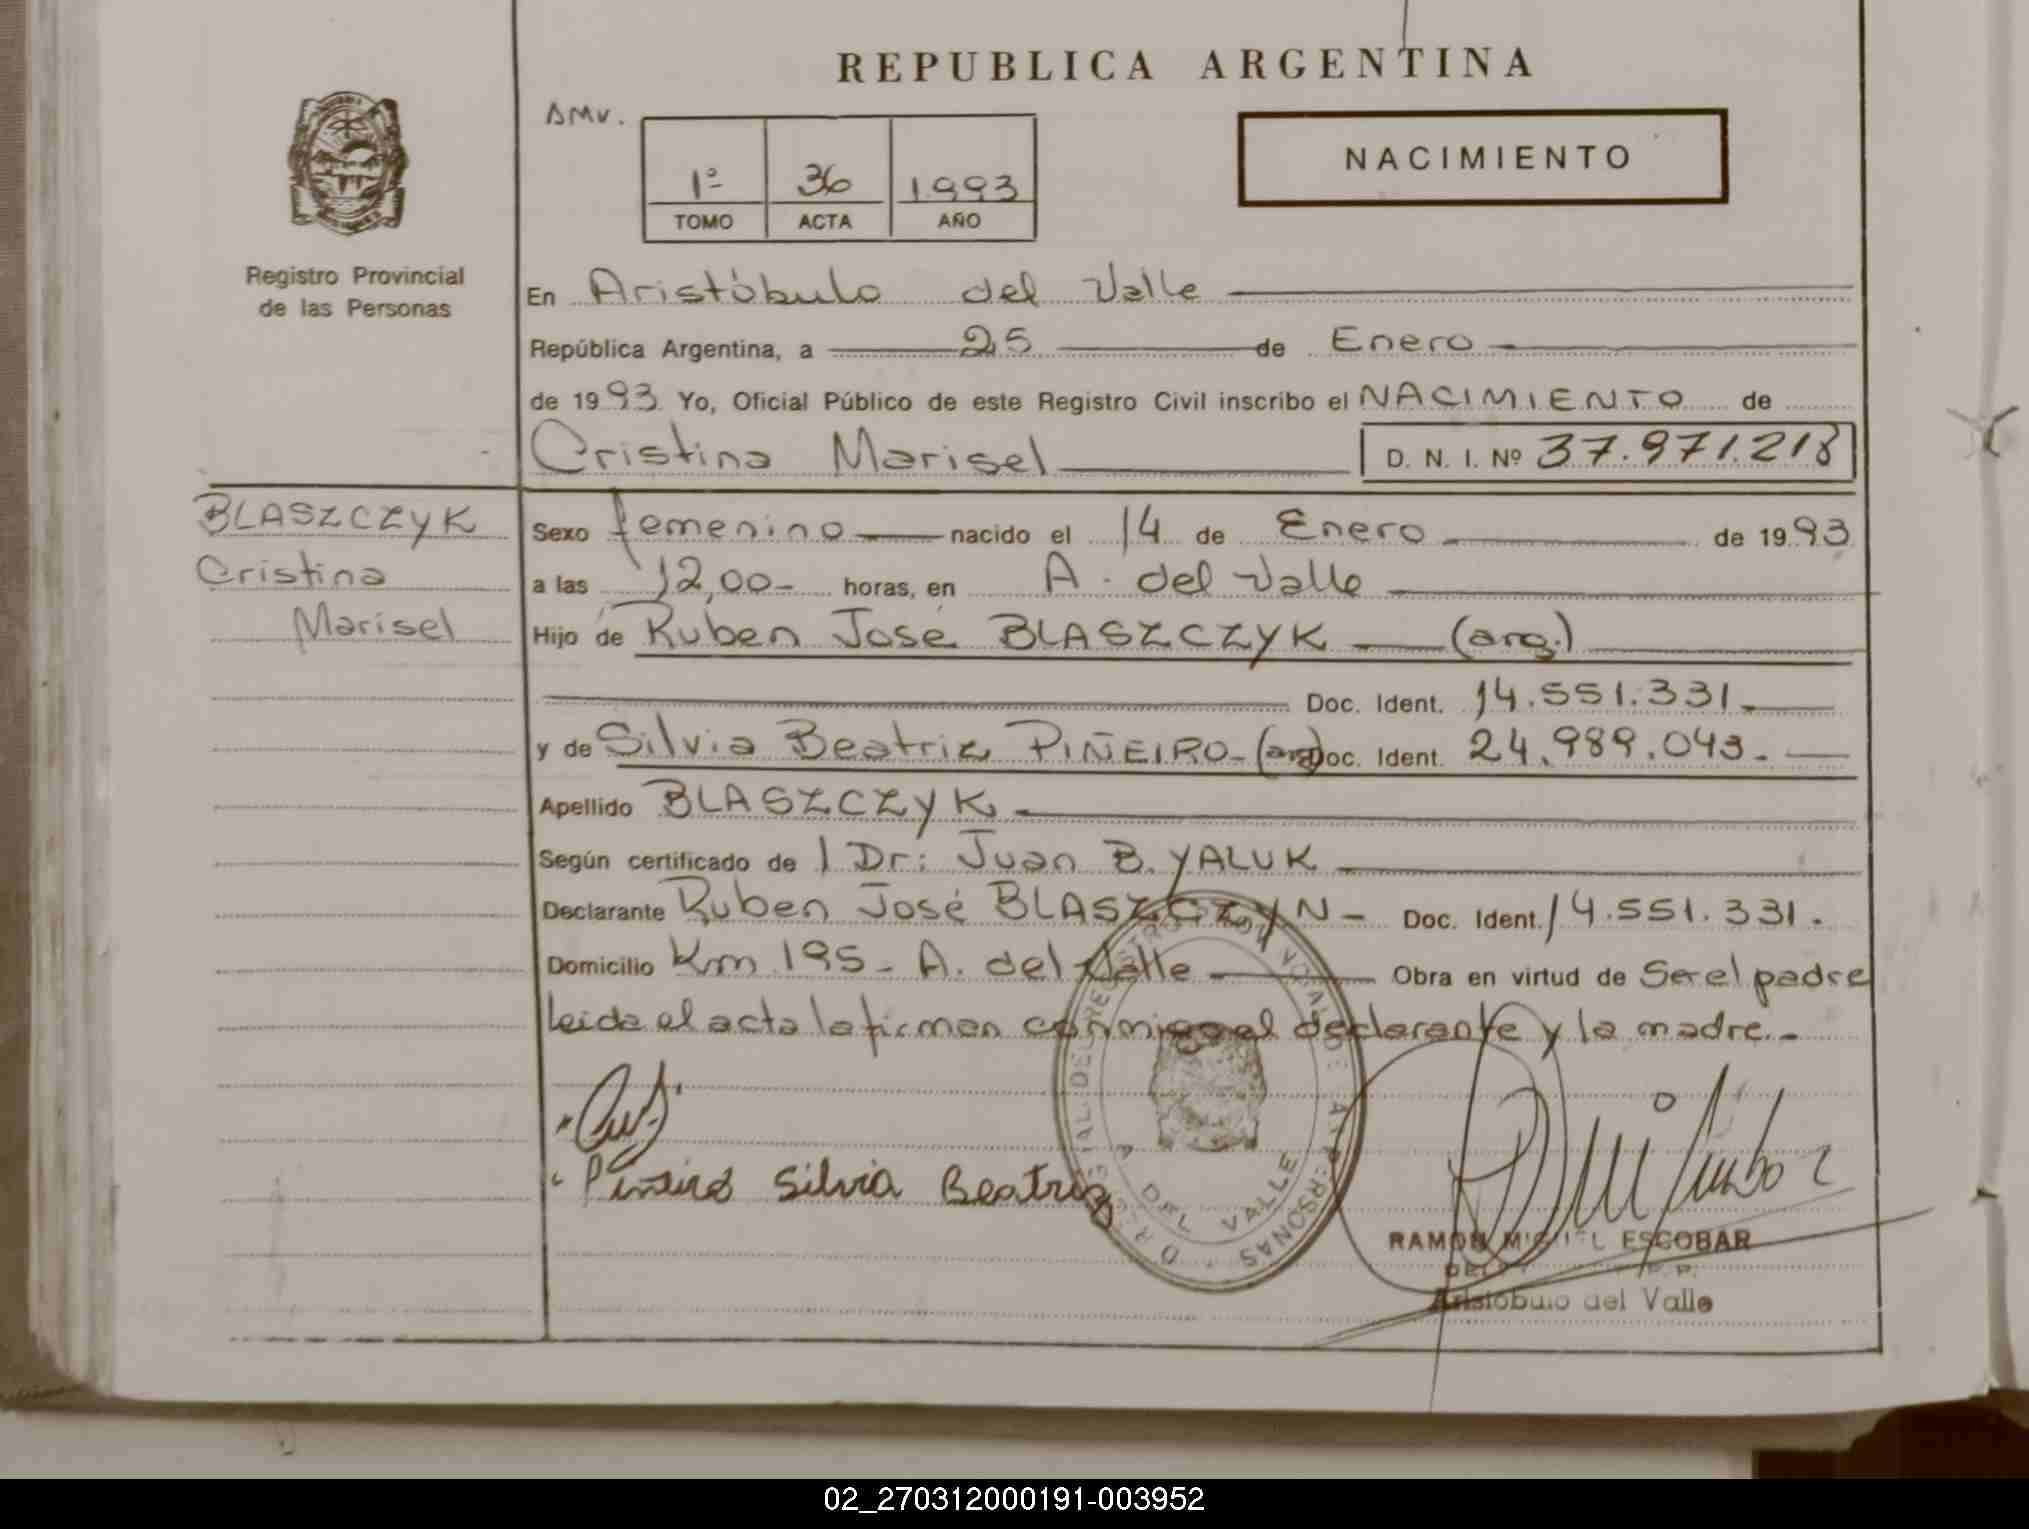 REPUBLICA ARGENTINA
AMV.
1º 36 1.993
TOMO ACTA AÑO
NACIMIENTO
Registro Provincial
de las Personas
En Aristóbulo del Valle
República Argentina, a 25 de Enero
de 1993. Yo, Oficial Público de este Registro Civil inscribo el NACIMIENTO de
Cristina Marisel D. N. I. Nº 37.971.218
BLASZCZYK
Cristina
Marisel
Sexo femenino nacido el 14 de Enero de 1993
a las 12,00- horas, en A. del Valle
Hijo de Ruben José BLASZCZYK (arg.)
Doc. Ident. 14.551.331.
y de Silvia Beatriz PIÑEIRO-(arg) Doc. Ident. 24.989.043.-
Apellido BLASZCZYK
Según certificado de l Dr: Juan B. YALUK
Declarante Ruben José BLASZCZYN- Doc. Ident. 14.551.331.
Domicilio Km 195- A. del Valle Obra en virtud de Ser el padre
leida el acta la firman conmigo el declarante y la madre.-
Piñeiro Silvia Beatriz
DEL VALLE
RAMON MIGUEL ESCOBAR
Aristobulo del Valle
02_270312000191-003952